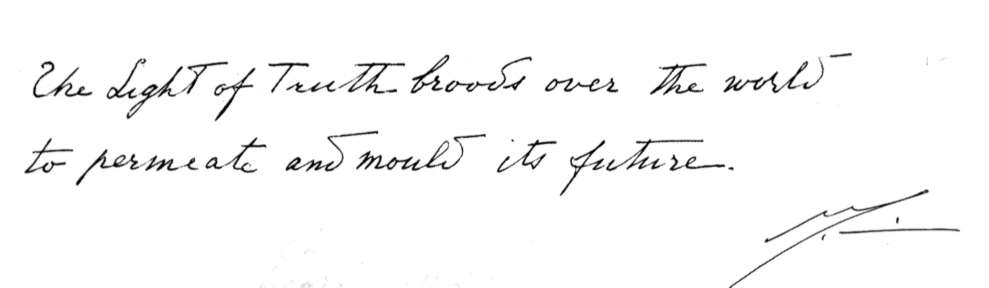 The Light of Truth broods over the world
to permeate and mould its future.